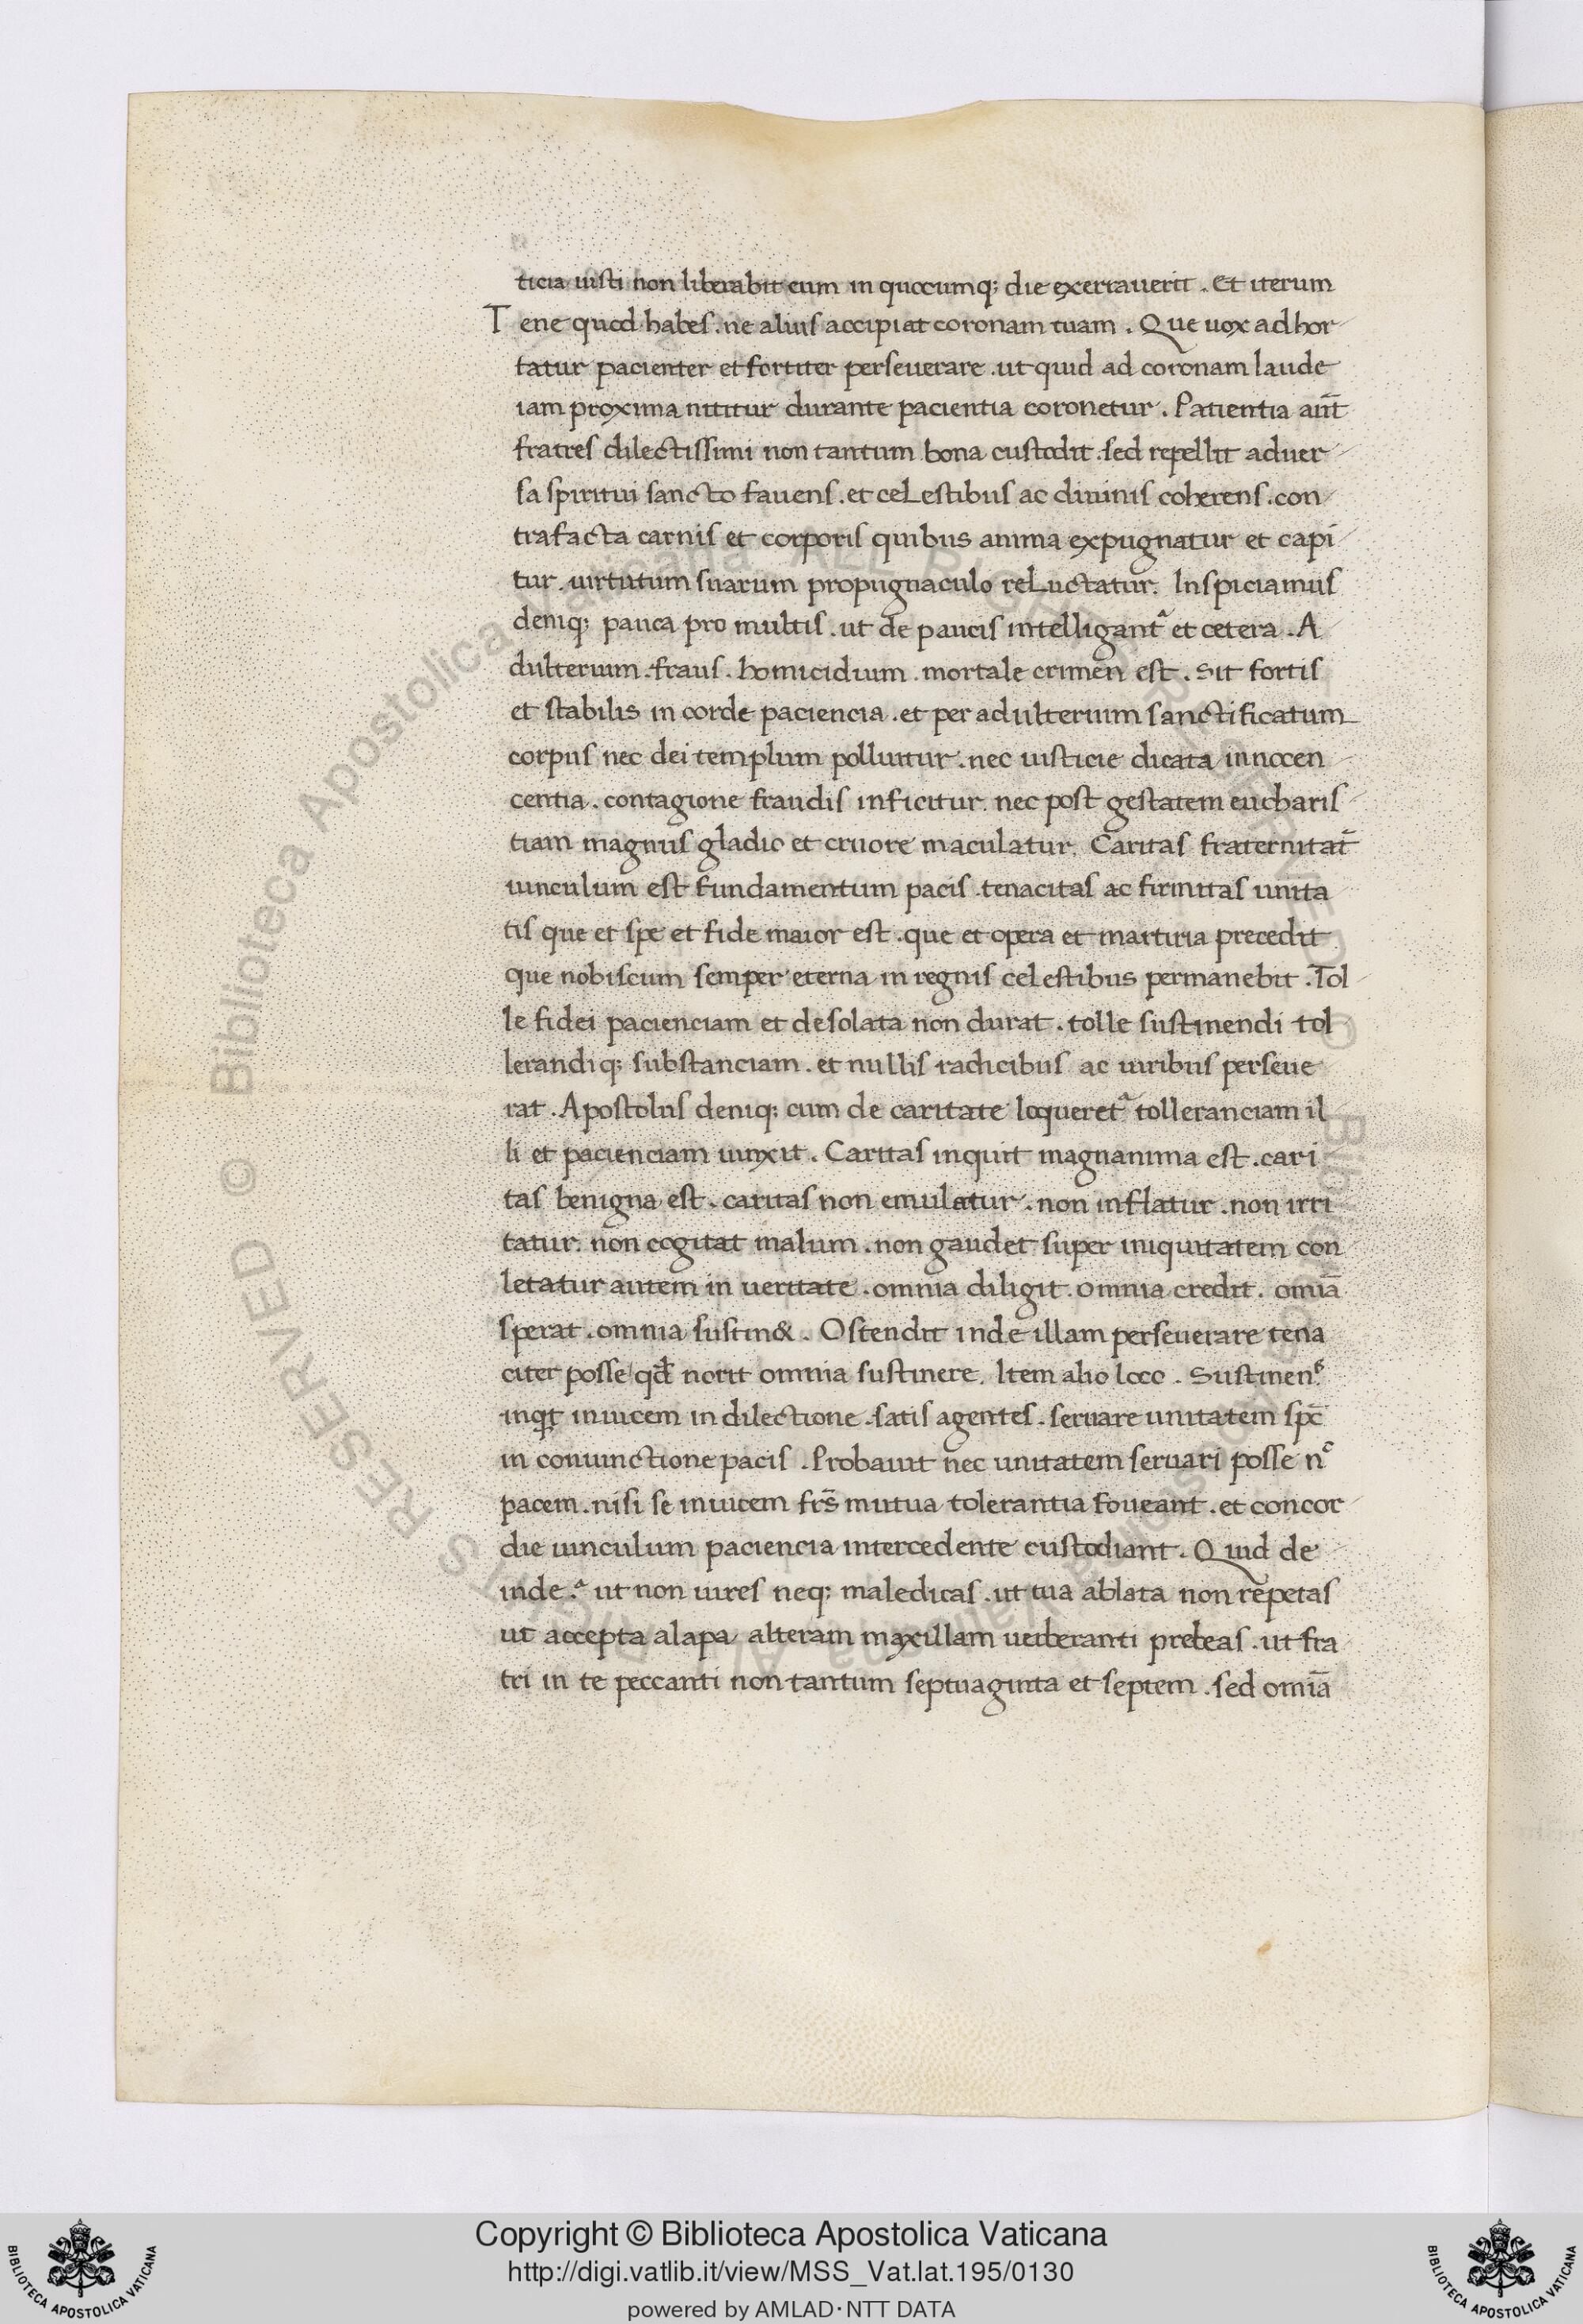 ticia iusti non liberabit eum in quocumq; die exerrauerit . Et iterum
Tene quod habes . ne alius accipiat coronam tuam . Que uox adhor
tatur pacienter et fortiter perseuerare . ut quid ad coronam laude
iam proxima nititur durante pacientia coronetur . Patientia aut̄
fratres dilectissimi non tantum bona custodit . sed repellit aduer
sa spiritui sancto fauens . et celestibus ac diuinis coherens . con
trafacta carnis et corporis quibus anima expugnatur et capi
tur . uirtutum suarum propugnaculo reluctatur . Inspiciamus
deniq; pauca pro multis . ut de paucis intelligant᷑ et cetera . A
dulterium . fraus . homicidium . mortale crimen est . Sit fortis
et stabilis in corde paciencia . et per adulterium sanctificatum
corpus nec dei templum polluitur . nec iusticie dicata innocen
centia . contagione fraudis inficitur . nec post gestatem eucharis
tiam magnus gladio et cruore maculatur . Caritas fraternitat᷑
uinculum est fundamentum pacis . tenacitas ac firmitas unita
tis que et spe et fide maior est . que et opera et martiria precedit
que nobiscum semper eterna in regnis celestibus permanebit . Tol
le fidei pacienciam et desolata non durat . tolle sustinendi tol
lerandiq; substanciam . et nullis radicibus ac uiribus perseue
rat . Apostolus deniq; cum de caritate loqueret᷑ tolleranciam il
li et pacienciam uinxit . Caritas inquit magnanima est . cari
tas benigna est . caritas non emulatur . non inflatur . non irri
tatur . non cogitat malum . non gaudet super iniquitatem con
letatur autem in ueritate . omnia diligit . omnia credit . omīa
sperat . omnia sustin& . Ostendit inde illam perseuerare tena
citer posse qđ norit omnia sustinere . Item alio loco . Sustinen᷑
inqt inuicem in dilectione . satis agentes . seruare unitatem spc̄
in coniunctione pacis . Probauit nec unitatem seruari posse nᶜ
pacem . nisi se inuicem frs̄ mutua tolerantia foueant . et concor
die uinculum paciencia intercedente custodiant . Quid de
inde . ut non iures neq; maledicas . ut tua ablata non repetas
ut accepta alapa alteram maxillam uerberanti prebeas . ut fra
tri in te peccanti non tantum septuaginta et septem . sed omīa
© Biblioteca Apostolica Vaticana ALL RIGHTS RESERVED © Biblioteca Apostolica Vaticana ALL RIGHTS RESERVED
Copyright © Biblioteca Apostolica Vaticana
http://digi.vatlib.it/view/MSS_Vat.lat.195/0130
powered by AMLAD·NTT DATA
BIBLIOTECA APOSTOLICA VATICANA
BIBLIOTECA APOSTOLICA VATICANA